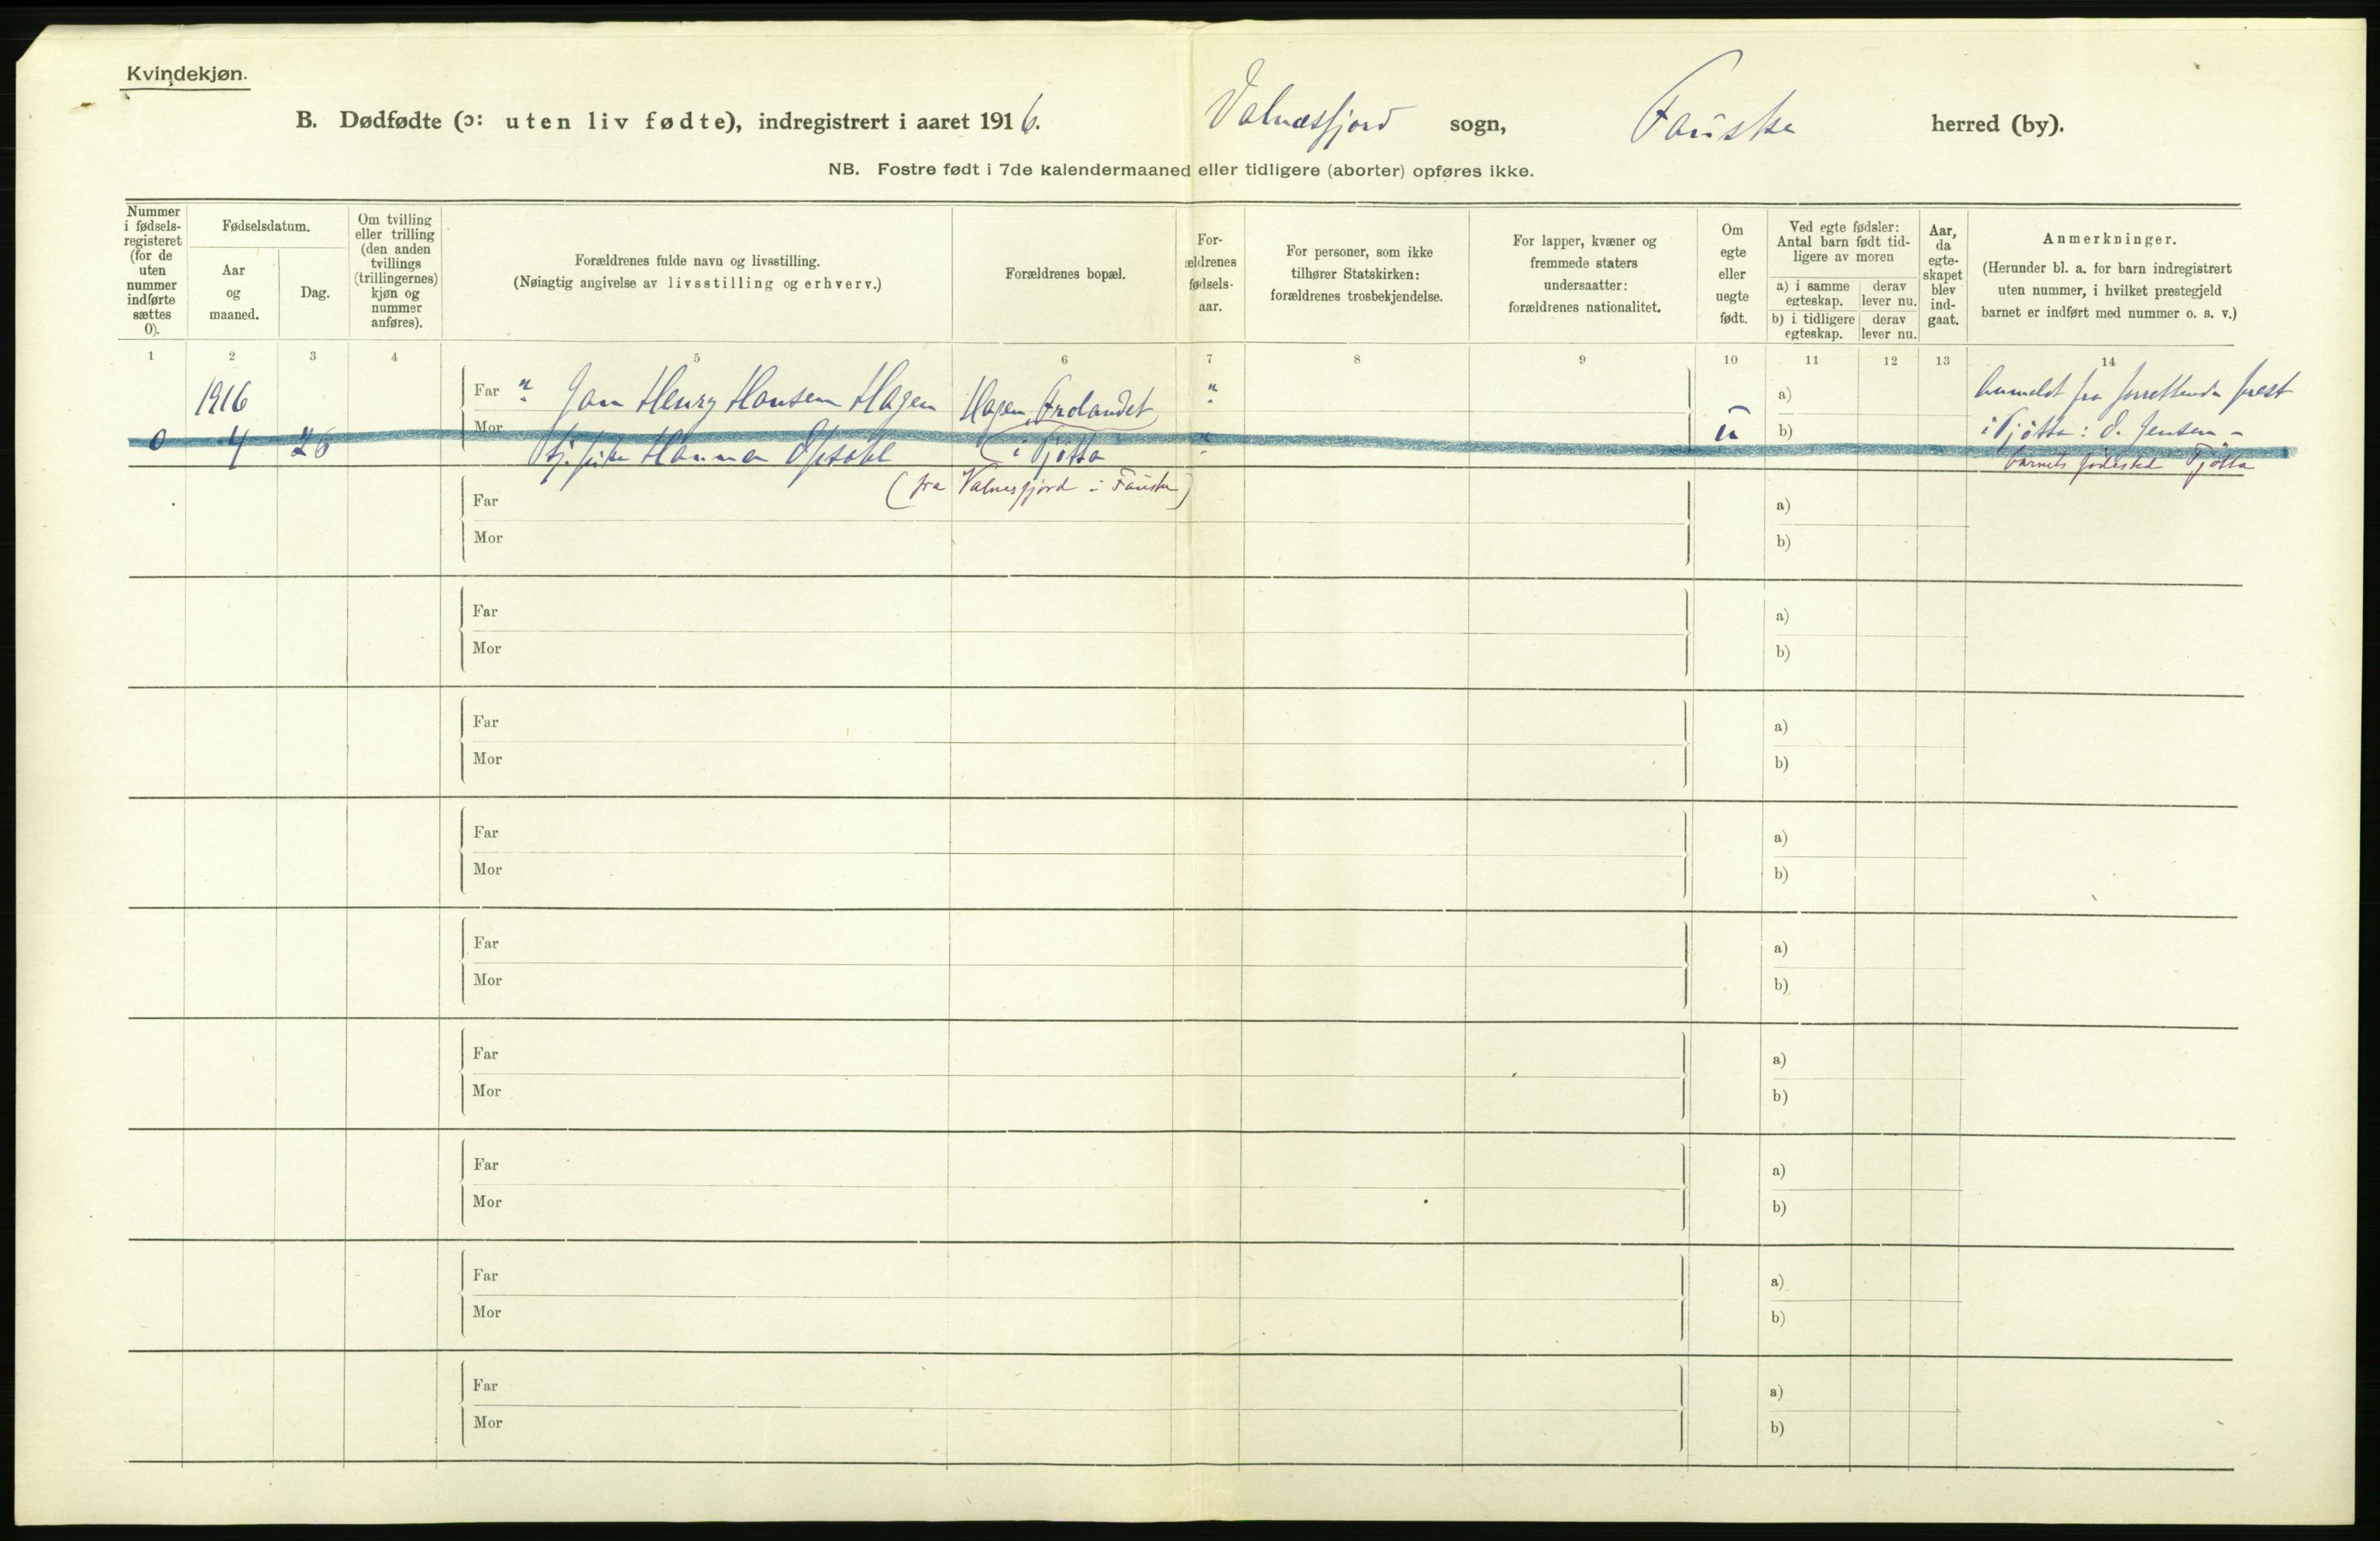 Kvindekjøn.
B. Dødfødte (ɔ: uten liv fødte), indregistrert i aaret 1916. Valnæsfjord sogn, Fauske herred (by).
NB. Fostre født i 7de kalendermaaned eller tidligere (aborter) opføres ikke.
Nummer i fødsels-registeret (for de uten nummer indførte sættes 0).
Fødselsdatum.
Aar og maaned.
Dag.
Om tvilling eller trilling (den anden tvillings (trillingernes) kjøn og nummer anføres).
Forældrenes fulde navn og livsstilling.
(Nøiagtig angivelse av livsstilling og erhverv.)
Forældrenes bopæl.
For-ældrenes fødsels-aar.
For personer, som ikke tilhører Statskirken: forældrenes trosbekjendelse.
For lapper, kvæner og fremmede staters undersaatter: forældrenes nationalitet.
Om egte eller uegte født.
Ved egte fødsler: Antal barn født tid-ligere av moren
a) i samme egteskap.
derav lever nu.
b) i tidligere egteskap.
derav lever nu.
Aar, da egte-skapet blev ind-gaat.
Anmerkninger.
(Herunder bl. a. for barn indregistrert uten nummer, i hvilket prestegjeld barnet er indført med nummer o. s. v.)
1 2 3 4 5 6 7 8 9 10 11 12 13 14
1916 Far " Jan Henry Hansen Hagen Hagen, " a) Anmeldt fra forrettende prest
0 4 26 Mor Hanna Opsahl i Tjøtta " b) i Tjøtta: Jensen -
(fra Valnesfjord i Fauske) barnets fødested Tjøtta
Far a)
Mor b)
Far a)
Mor b)
Far a)
Mor b)
Far a)
Mor b)
Far a)
Mor b)
Far a)
Mor b)
Far a)
Mor b)
Far a)
Mor b)
Far a)
Mor b)